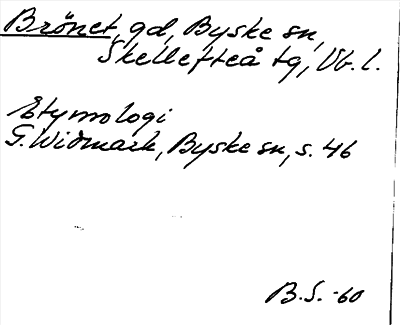 Brönet, gd, Byske sn,
Skellefteå tg, Vb. l.
Etymologi
G. Widmark, Byske sn, s. 46
B.S. -60